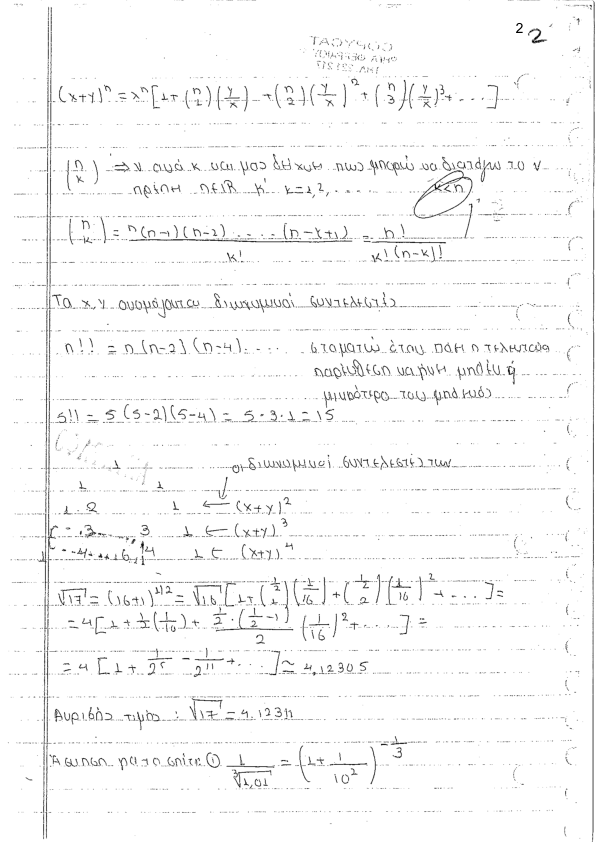 2 2
COPYCAT
(x+y)ⁿ = xⁿ [1 + (n 1)(y/x) + (n 2)(y/x)² + (n 3)(y/x)³ + ...]
(n k) ⇒ ν ανά κ και μας δείχνει πως μπορώ να διατάξω το ν
n∈ℝ k k=1,2, .... k<n
(n k) = n(n-1)(n-2) ..... (n-k+1) / k! = n! / k!(n-k)!
Τα x,y ονομάζονται διωνυμικοί συντελεστές
n!! = n(n-2)(n-4).... σταματώ έτσι που η τελευταία
παρένθεση να μην μηδέν ή
μικρότερο του μηδενός
5!! = 5(5-2)(5-4) = 5·3·1 = 15
1 οι διωνυμικοί συντελεστές των
1 1
1 2 1 ← (x+y)²
3 3 1 ← (x+y)³
1 4 6 4 1 ← (x+y)⁴
√17 = (16+1)^1/2 = √16 [1 + (1/2 1)(1/16) + (1/2 2)(1/16)² + ...] =
= 4[1 + 1/2(1/16) + 1/2·(1/2-1)/2 (1/16)² + ...] =
= 4[1 + 1/2⁵ - 1/2¹¹ + ...] ≃ 4,12305
Ακριβής τιμή : √17 = 4.12311
Άσκηση για το σπίτι ① 1/∛1,01 = (1 + 1/10²)^-1/3